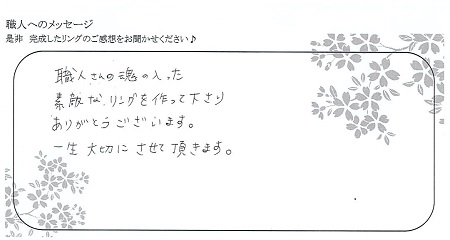 職人へのメッセージ
是非 完成したリングのご感想をお聞かせください♪
職人さんの魂の入った
素敵なリングを作って下さり
ありがとうございます。
一生大切にさせて頂きます。